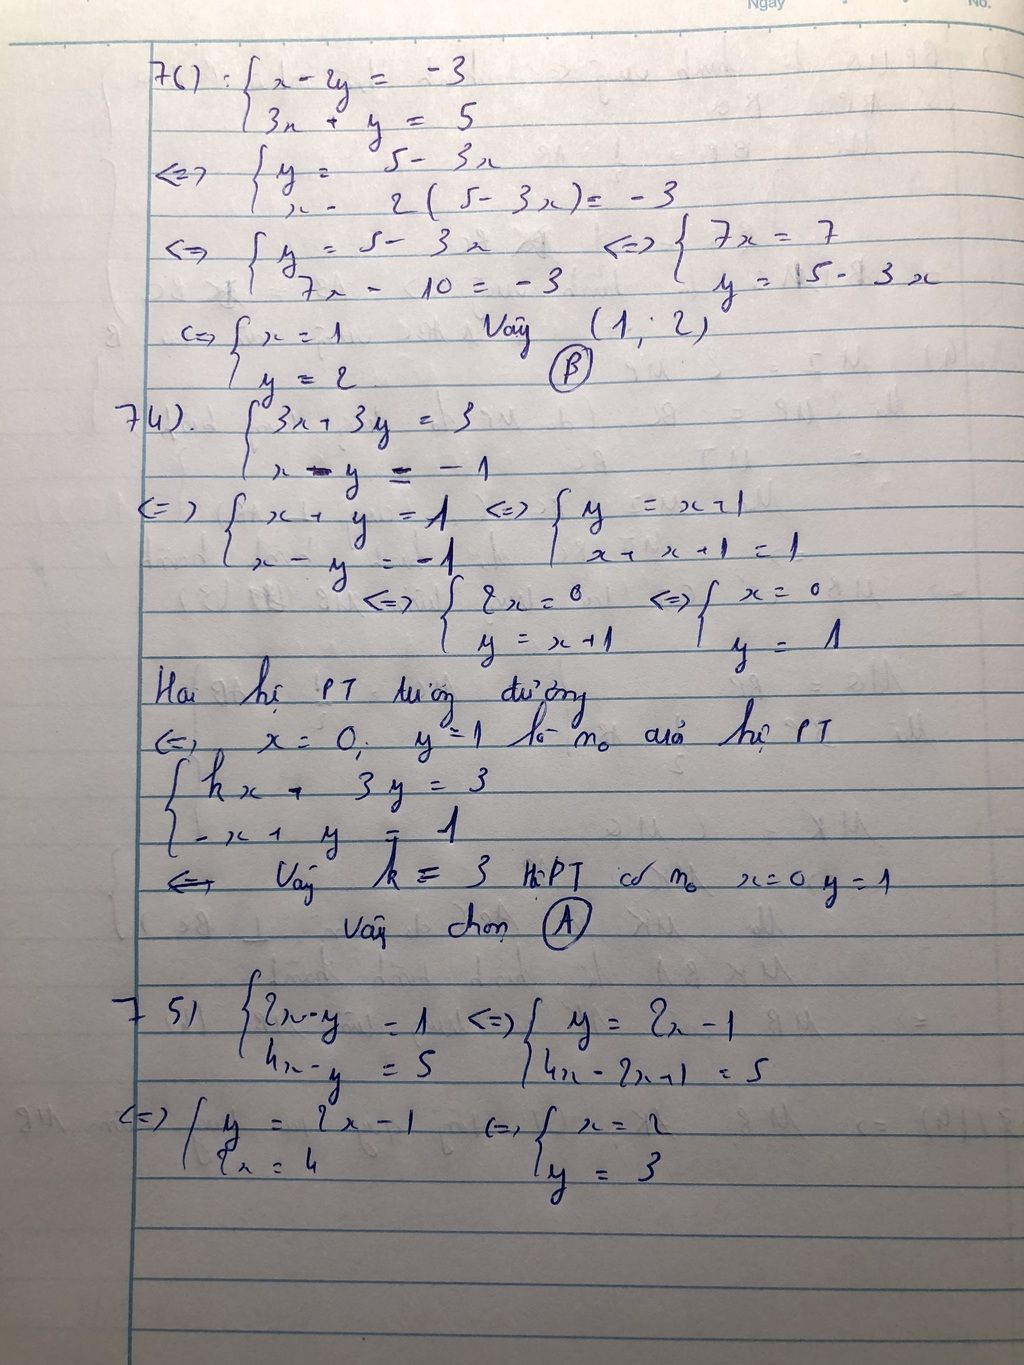 Ngày No.
76) : { x - 2y = -3
3x + y = 5
<=> { y = 5 - 3x
x - 2(5 - 3x) = -3
<=> { y = 5 - 3x <=> { 7x = 7
7x - 10 = -3 y = 5 - 3x
<=> { x = 1 Vậy (1; 2)
y = 2 B
74). { 3x + 3y = 3
x - y = -1
<=> { x + y = 1 <=> { y = x+1
x - y = -1 x + x + 1 = 1
<=> { 2x = 0 <=> { x = 0
y = x+1 y = 1
Hai hệ PT tương đương
<=> x = 0; y = 1 là no của hệ PT
{ kx + 3y = 3
-x + y = 1
<=> Vậy k = 3 HệPT có no x=0 y=1
Vậy chọn A
75) { 2x - y = 1 <=> { y = 2x - 1
4x - y = 5 4x - 2x+1 = 5
<=> { y = 2x - 1 <=> { x = 2
2x = 4 y = 3